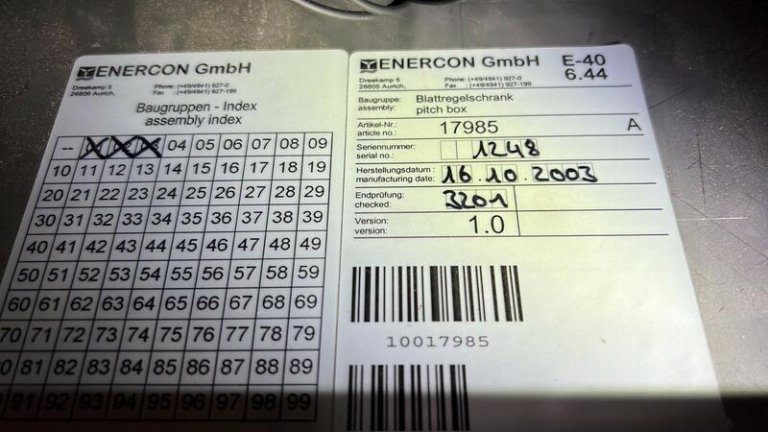 ENERCON GmbH
Dreekamp 5 Phone: (+49/4941) 927-0
26605 Aurich, Fax : (+49/4941) 927-199
Baugruppen - Index
assembly index
-- 04 05 06 07 08 09
10 11 12 13 14 15 16 17 18 19
20 21 22 23 24 25 26 27 28 29
30 31 32 33 34 35 36 37 38 39
40 41 42 43 44 45 46 47 48 49
50 51 52 53 54 55 56 57 58 59
60 61 62 63 64 65 66 67 68 69
70 71 72 73 74 75 76 77 78 79
0 81 82 83 84 85 86 87 88 89
91 92 93 94 95 96 97 98 99
ENERCON GmbH E-40
6.44
Dreekamp 5 Phone: (+49/4941) 927-0
26605 Aurich, Fax : (+49/4941) 927-199
Baugruppe: Blattregelschrank
assembly: pitch box
Artikel-Nr.:
article no.: 17985 A
Seriennummer:
serial no.: 1248
Herstellungsdatum:
manufacturing date: 16.10.2003
Endprüfung:
checked: 3201
Version:
version: 1.0
10017985